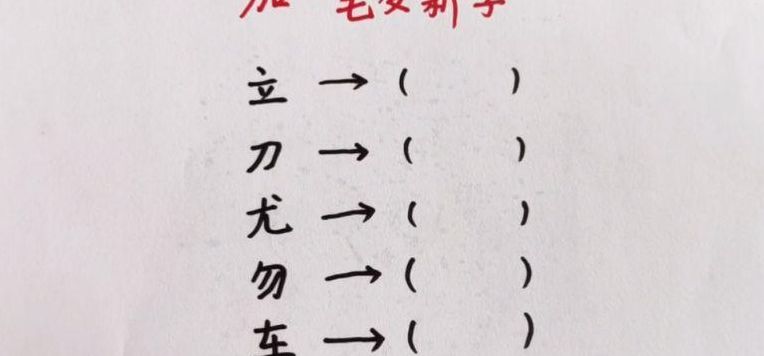 加一笔变新字
立 → (  )
刀 → (  )
尤 → (  )
勿 → (  )
车 → (  )